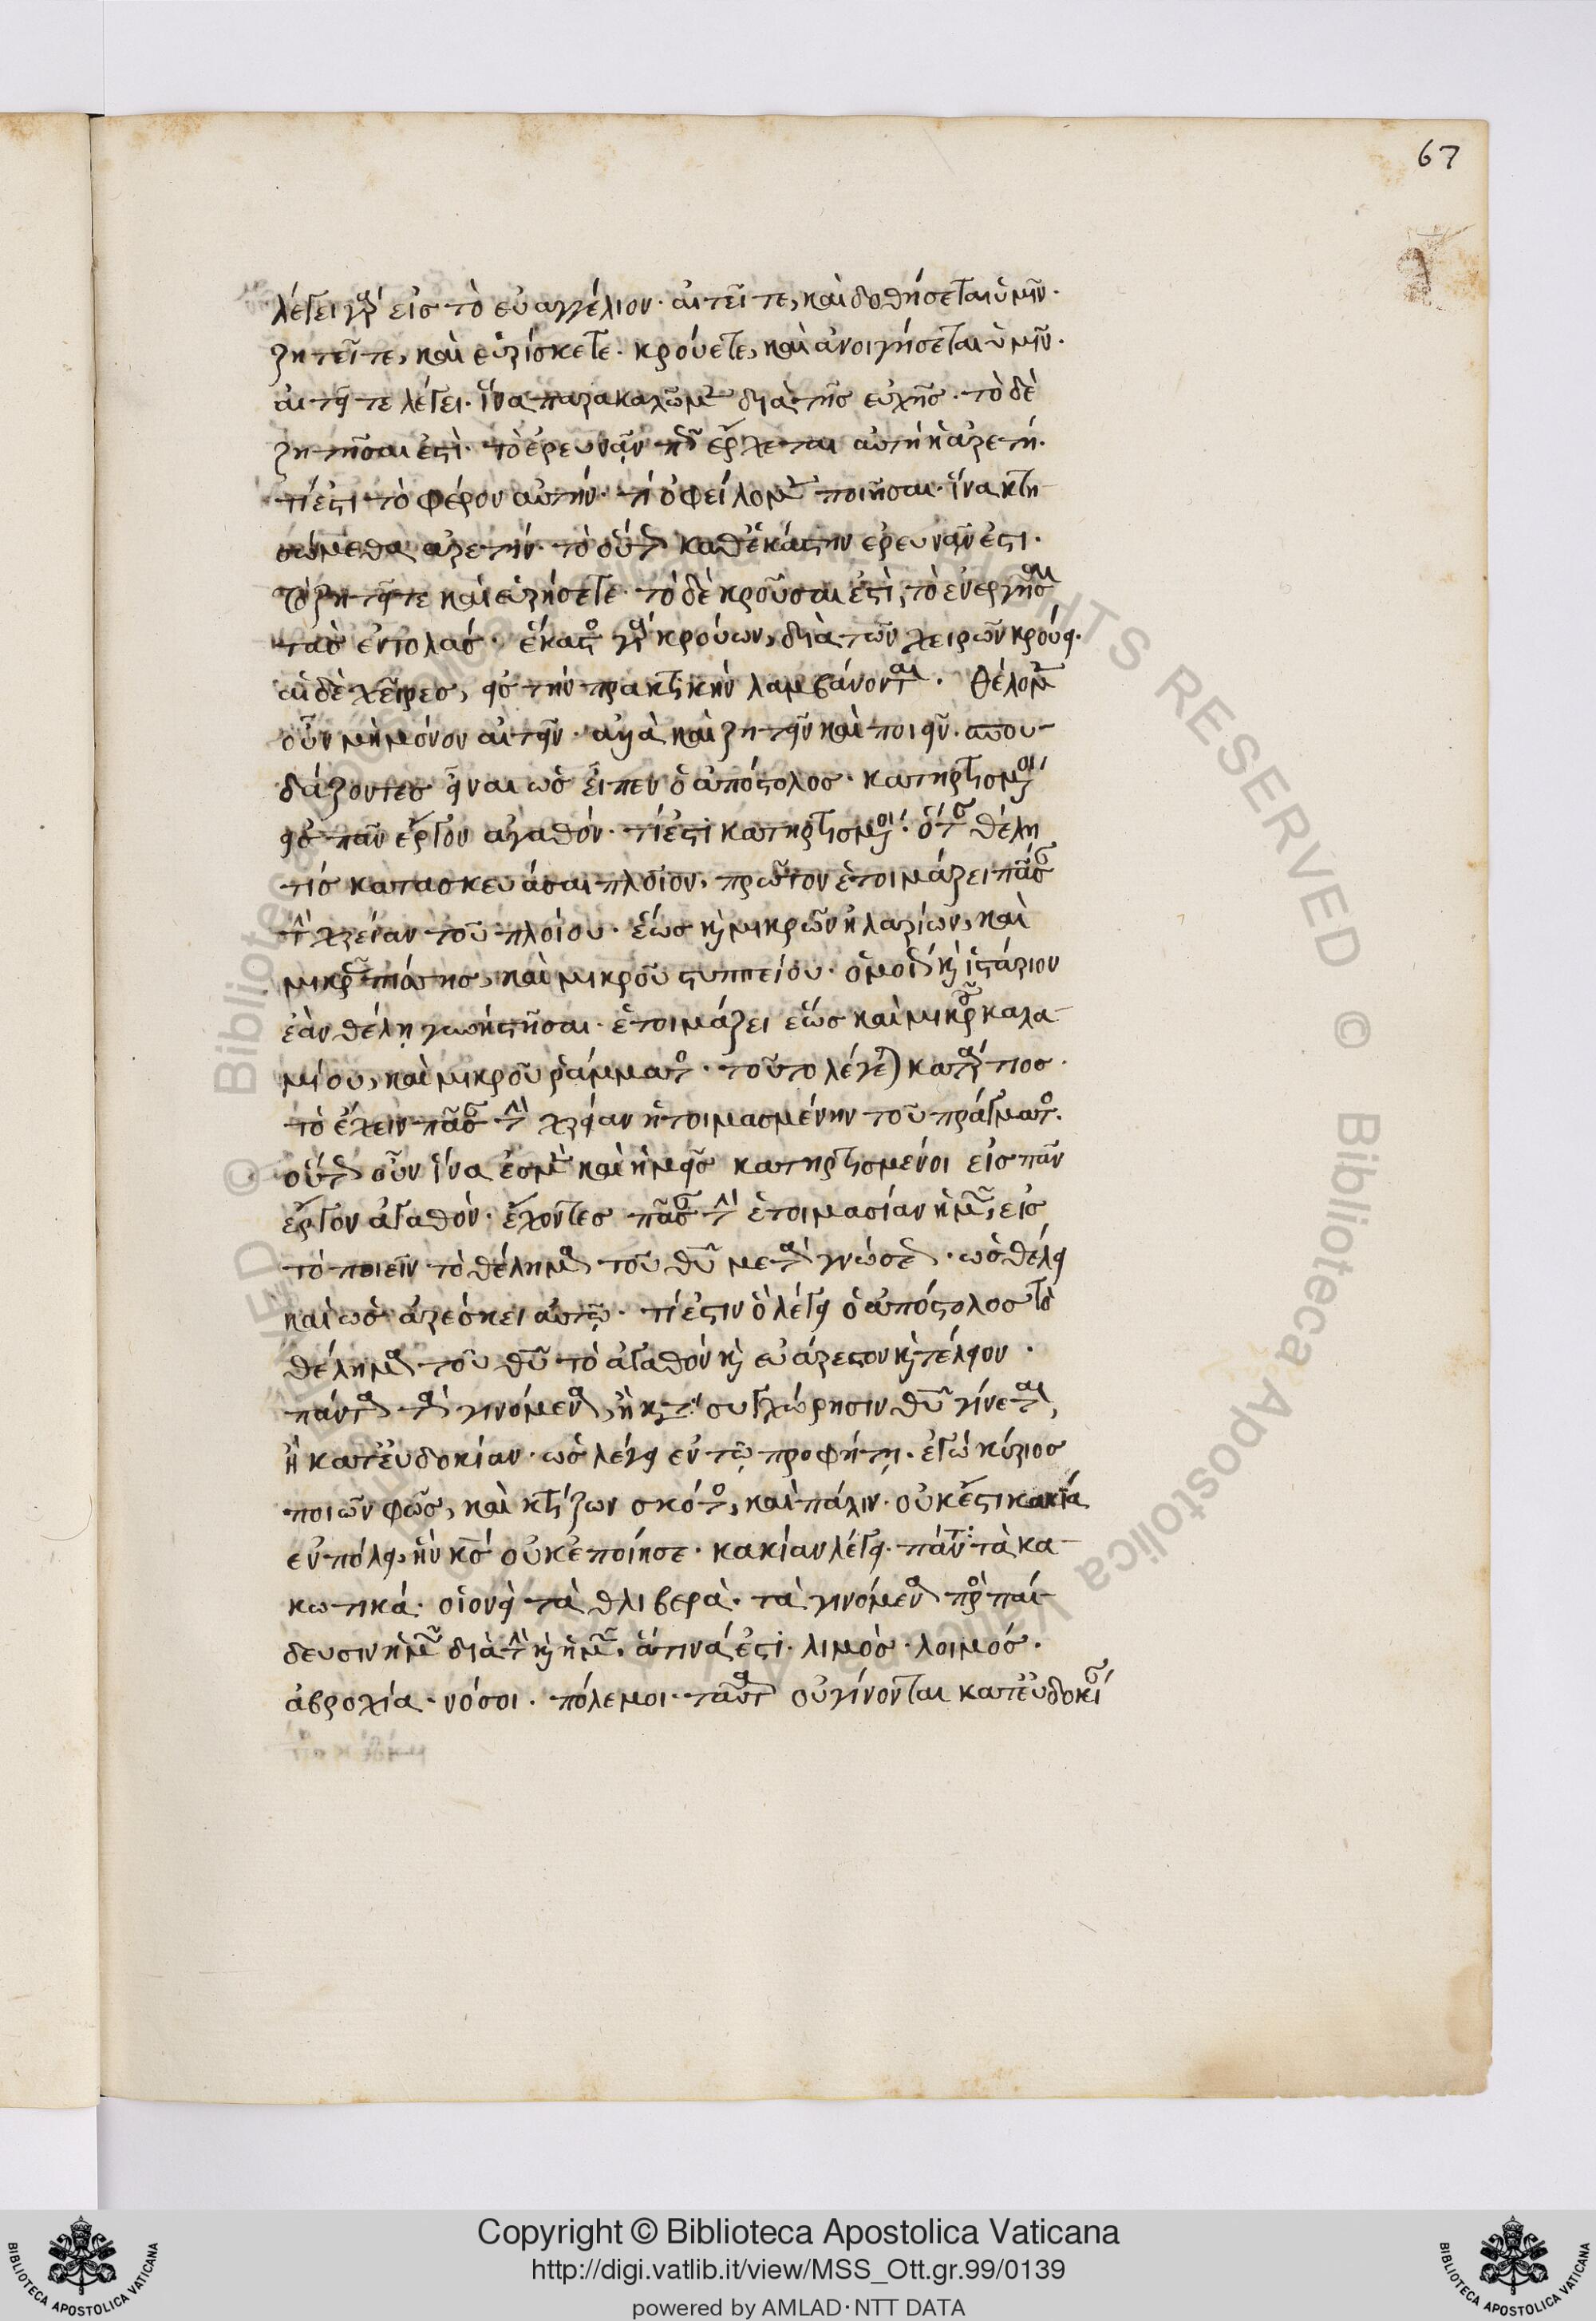 67
λέγει γὰρ εἰς τὸ εὐαγγέλιον· αἰτεῖτε, καὶ δοθήσεται ὑμῖν·
ζητεῖτε, καὶ εὑρίσκετε· κρούετε, καὶ ἀνοιγήσεται ὑμῖν·
αἰτεῖτε λέγει· ἵνα παρακαλῶμεν διὰ τῆς εὐχῆς· τὸ δὲ
ζητῆσαι ἐστὶ· τὸ ἐρευνᾷν πῶς ἔρχεται αὐτὴ ἡ ἀρετή·
τί ἐστι τὸ φέρον αὐτήν· τί ὀφείλομεν ποιῆσαι· ἵνα κτη
σώμεθα ἀρετήν· τὸ οὕτως καθεκάστην ἐρευνᾷν ἐστι·
τὸ ζητεῖτε καὶ εὑρήσετε· τὸ δὲ κροῦσαι ἐστὶ, τὸ ἐνεργῆσαι
τὰς ἐντολάς· ἕκαστος γὰρ κρούων, διὰ τῶν χειρῶν κρούει·
αἱ δὲ χεῖρες, εἰς τὴν πρακτικὴν λαμβάνονται· θέλομεν
οὖν μὴ μόνον αἰτεῖν· ἀλλὰ καὶ ζητεῖν καὶ ποιεῖν· σπου-
δάζοντες εἶναι ὡς εἶπεν ὁ ἀπόστολος· κατηρτισμένοι
εἰς πᾶν ἔργον ἀγαθόν· τί ἐστι κατηρτισμένοι· ὅταν θέλῃ
τίς κατασκευάσαι πλοῖον, πρῶτον ἑτοιμάζει πᾶσαν
τὴν χρείαν τοῦ πλοίου· ἕως καὶ μικρῶν ἡλαρίων, καὶ
μικρᾶς πίσσης, καὶ μικροῦ στυππείου· ὁμοίως καὶ ἱστάριον
ἐὰν θέλῃ γυνὴ στῆσαι· ἑτοιμάζει ἕως καὶ μικροῦ καλα-
μίου, καὶ μικροῦ ῥάμματος· τοῦτο λέγεται κατάρτισις·
τὸ ἔχειν πᾶσαν τὴν χρείαν ἡτοιμασμένην τοῦ πράγματος·
οὕτως οὖν ἵνα ἐσμὲν καὶ ἡμεῖς κατηρτισμένοι εἰς πᾶν
ἔργον ἀγαθὸν· ἔχοντες πᾶσαν τὴν ἑτοιμασίαν ἡμῶν, εἰς
τὸ ποιεῖν τὸ θέλημα τοῦ θυ μετὰ γνώσεως· ὡς θέλει
καὶ ὡς ἀρέσκει αὐτῷ· τί ἐστιν ὃ λέγει ὁ ἀπόστολος τὸ
θέλημα τοῦ θυ τὸ ἀγαθὸν καὶ εὐάρεστον καὶ τέλειον·
πάντα τὰ γινόμενα, ἢ κατὰ συγχώρησιν θυ γίνεται,
ἢ κατ' εὐδοκίαν· ὡς λέγει ἐν τῷ προφήτῃ· ἐγὼ κύριος
ποιῶν φῶς, καὶ κτίζων σκότος, καὶ πάλιν· οὐκ ἔστι κακία
ἐν πόλει, ἣν κς οὐκ ἐποίησε· κακίαν λέγει· πάντα τὰ κα-
κωτικά· οἱονεὶ τὰ θλιβερὰ· τὰ γινόμενα πρὸς παί-
δευσιν ἡμῶν διὰ τὴν κακίαν ἡμῶν, ἅτινά ἐστι· λιμὸς· λοιμός·
ἀβροχία· νόσοι· πόλεμοι· ταῦτα οὐ γίνονται κατ' εὐδοκίαν
Copyright © Biblioteca Apostolica Vaticana
http://digi.vatlib.it/view/MSS_Ott.gr.99/0139
powered by AMLAD·NTT DATA